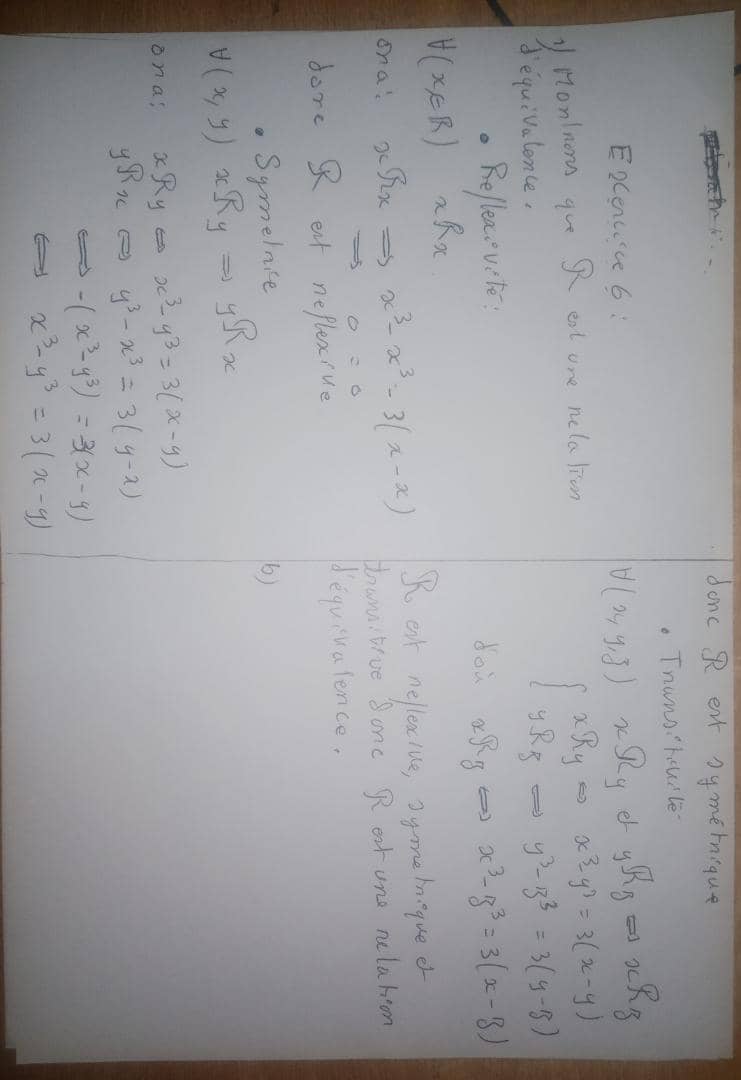 Exercice 6 :
1) Montrons que R est une relation
d'équivalence.
• Reflexivité :
∀(x∈R) xRx.
ona: xRx ⟹ x³-x³ = 3(x-x)
⟹ 0 = 0
donc R est reflexive
• Symetrie
∀(x,y) xRy ⟹ yRx
ona: xRy ⟺ x³-y³ = 3(x-y)
yRx ⟺ y³-x³ = 3(y-x)
⟺ -(x³-y³) = -3(x-y)
⟺ x³-y³ = 3(x-y)
donc R est symétrique
• Transitivité
∀(x,y,z) xRy et yRz ⟺ xRz
{ xRy ⟺ x³-y³ = 3(x-y)
yRz ⟺ y³-z³ = 3(y-z)
d'où xRz ⟺ x³-z³ = 3(x-z)
R est reflexive, symetrique et
transitive donc R est une relation
d'équivalence.
b)